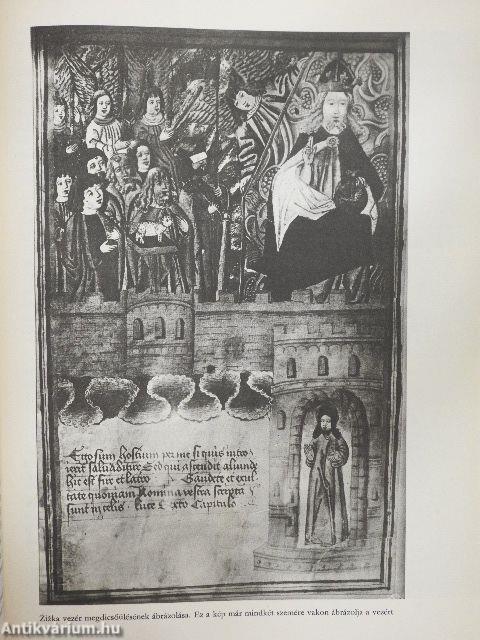 Ego sum hostium per me si quis intro
ierit saluabitur Sed qui ascendit aliunde
hic est fur et latro Gaudete et exul
tate quoniam Nomina vestra scripta
sunt in celis luce Capitulo
Žižka vezér megdicsőülésének ábrázolása. Ez a kép már mindkét szemére vakon ábrázolja a vezért
Antikvárium.hu